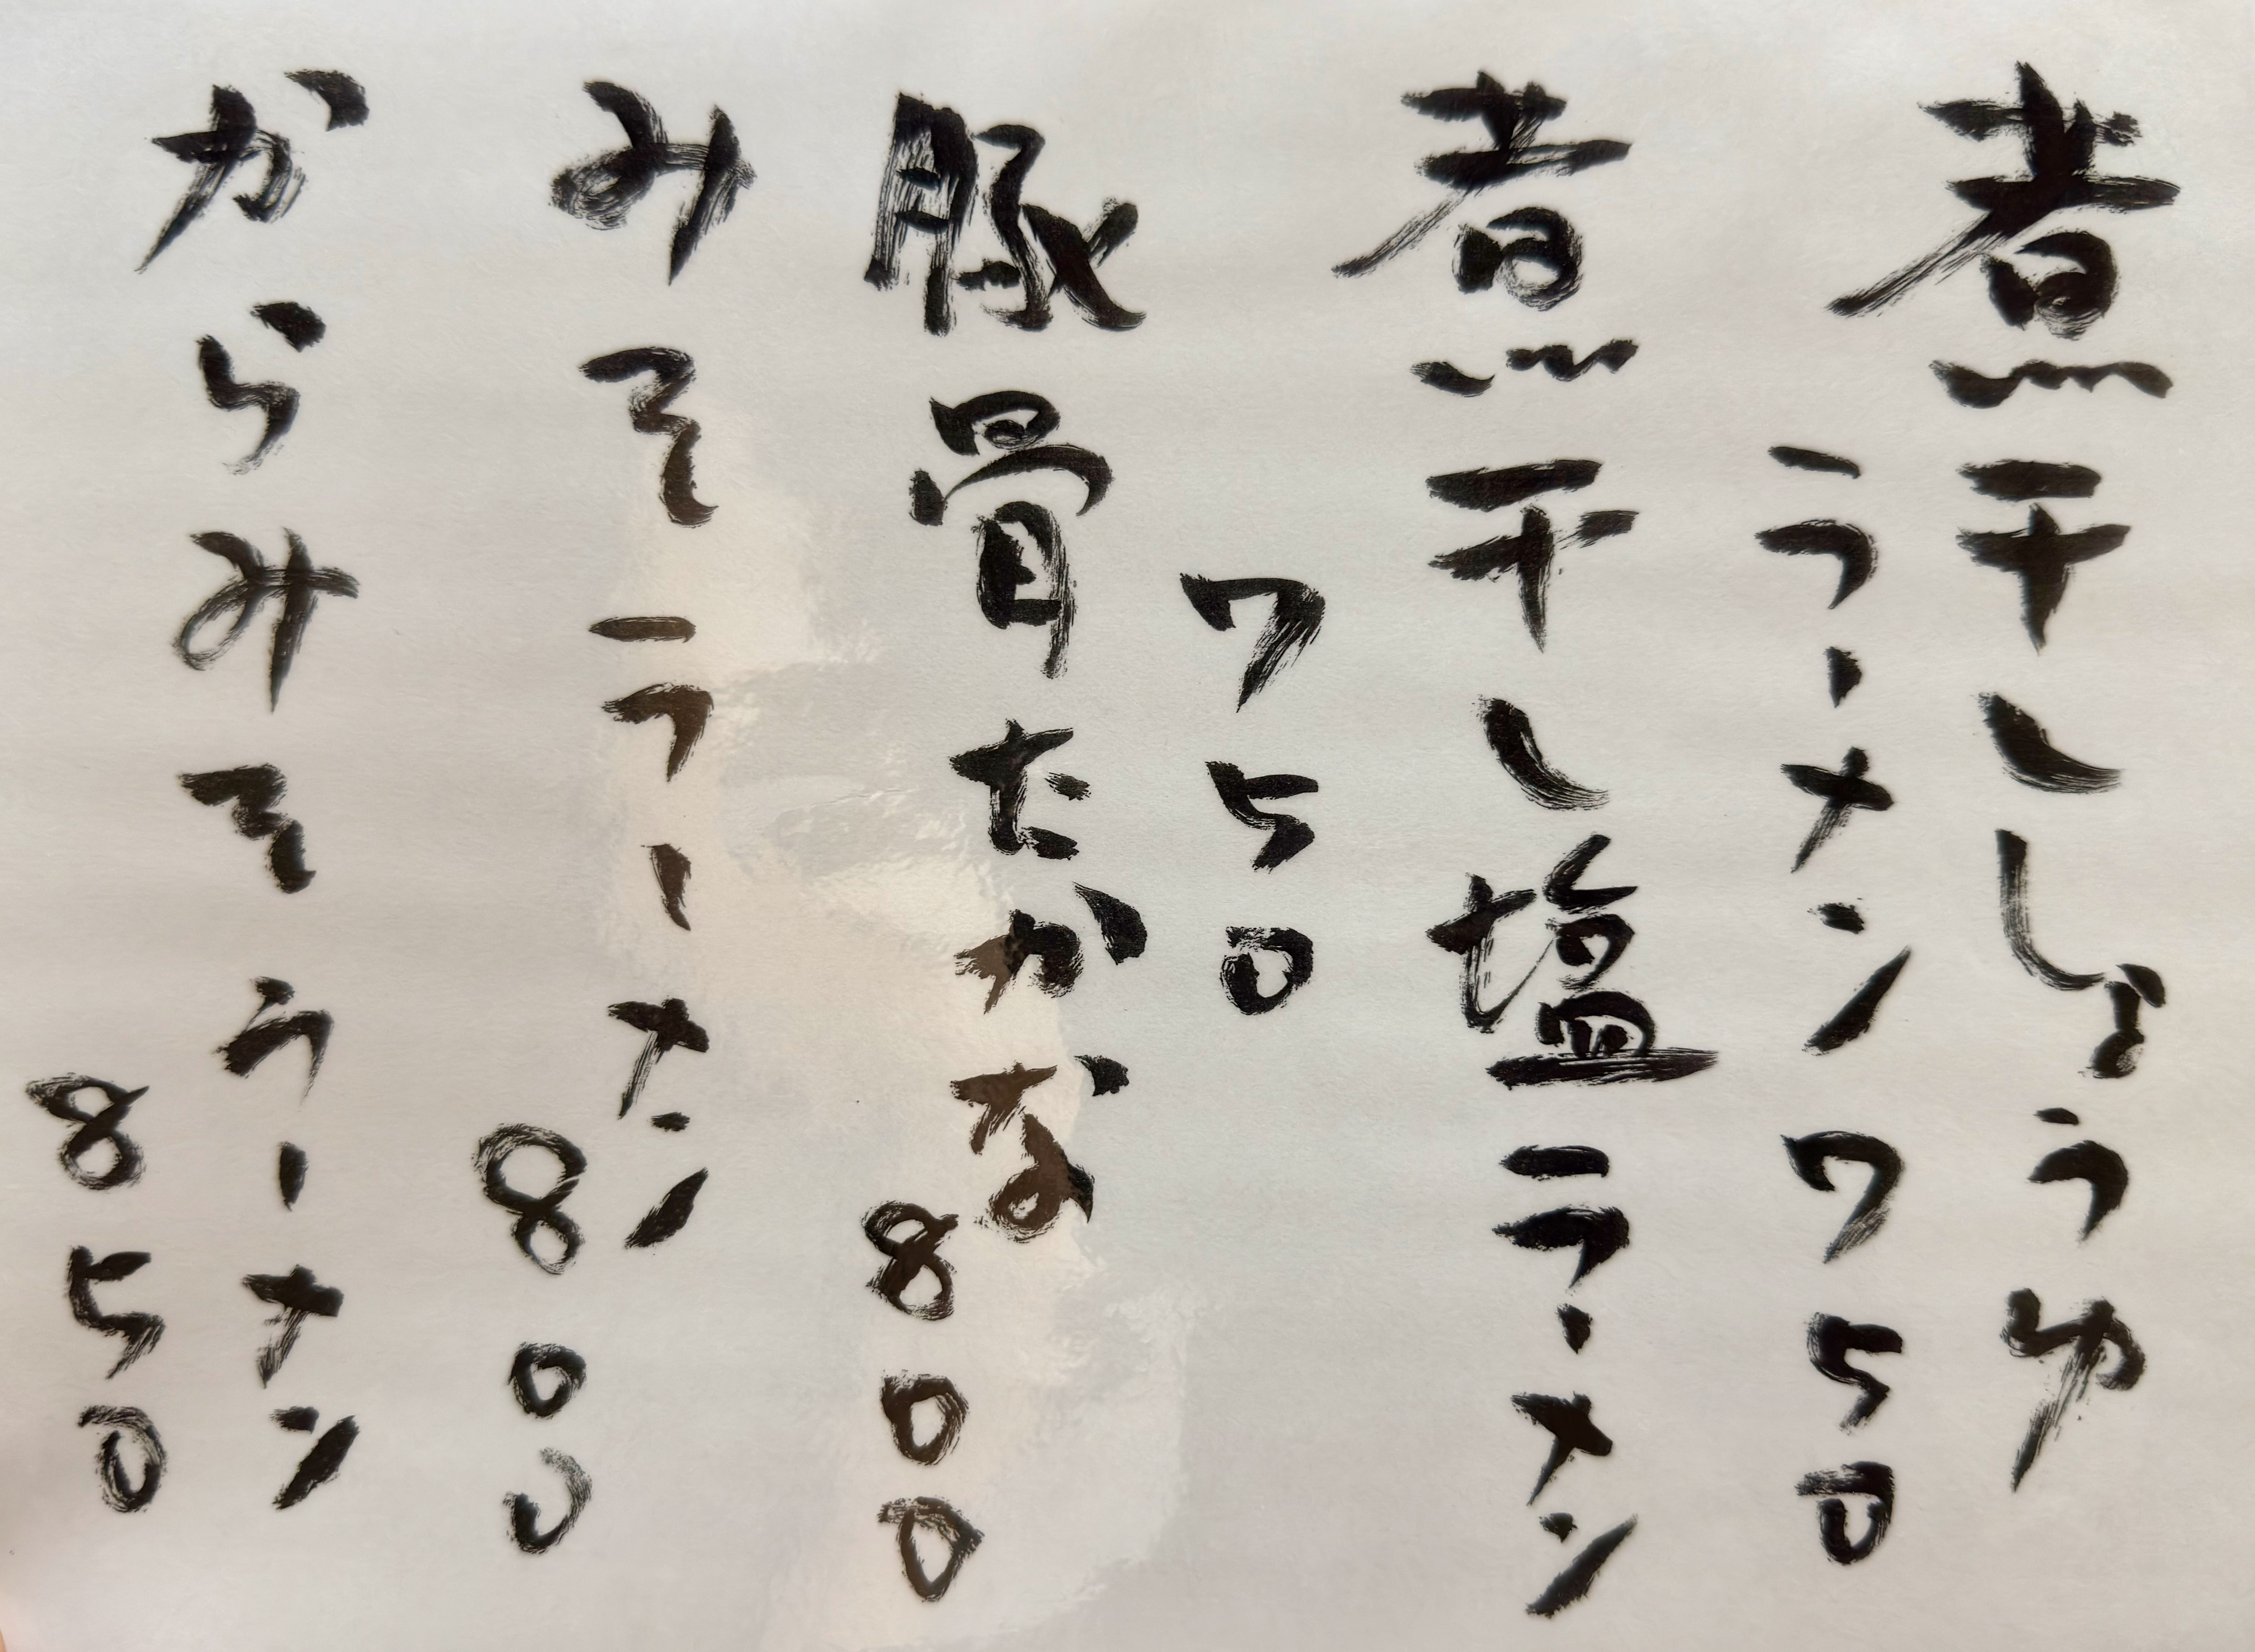 煮干ししょうゆ
ラーメン 750
煮干し塩ラーメン
750
豚骨たかな 800
みそラーメン
800
からみそラーメン
850